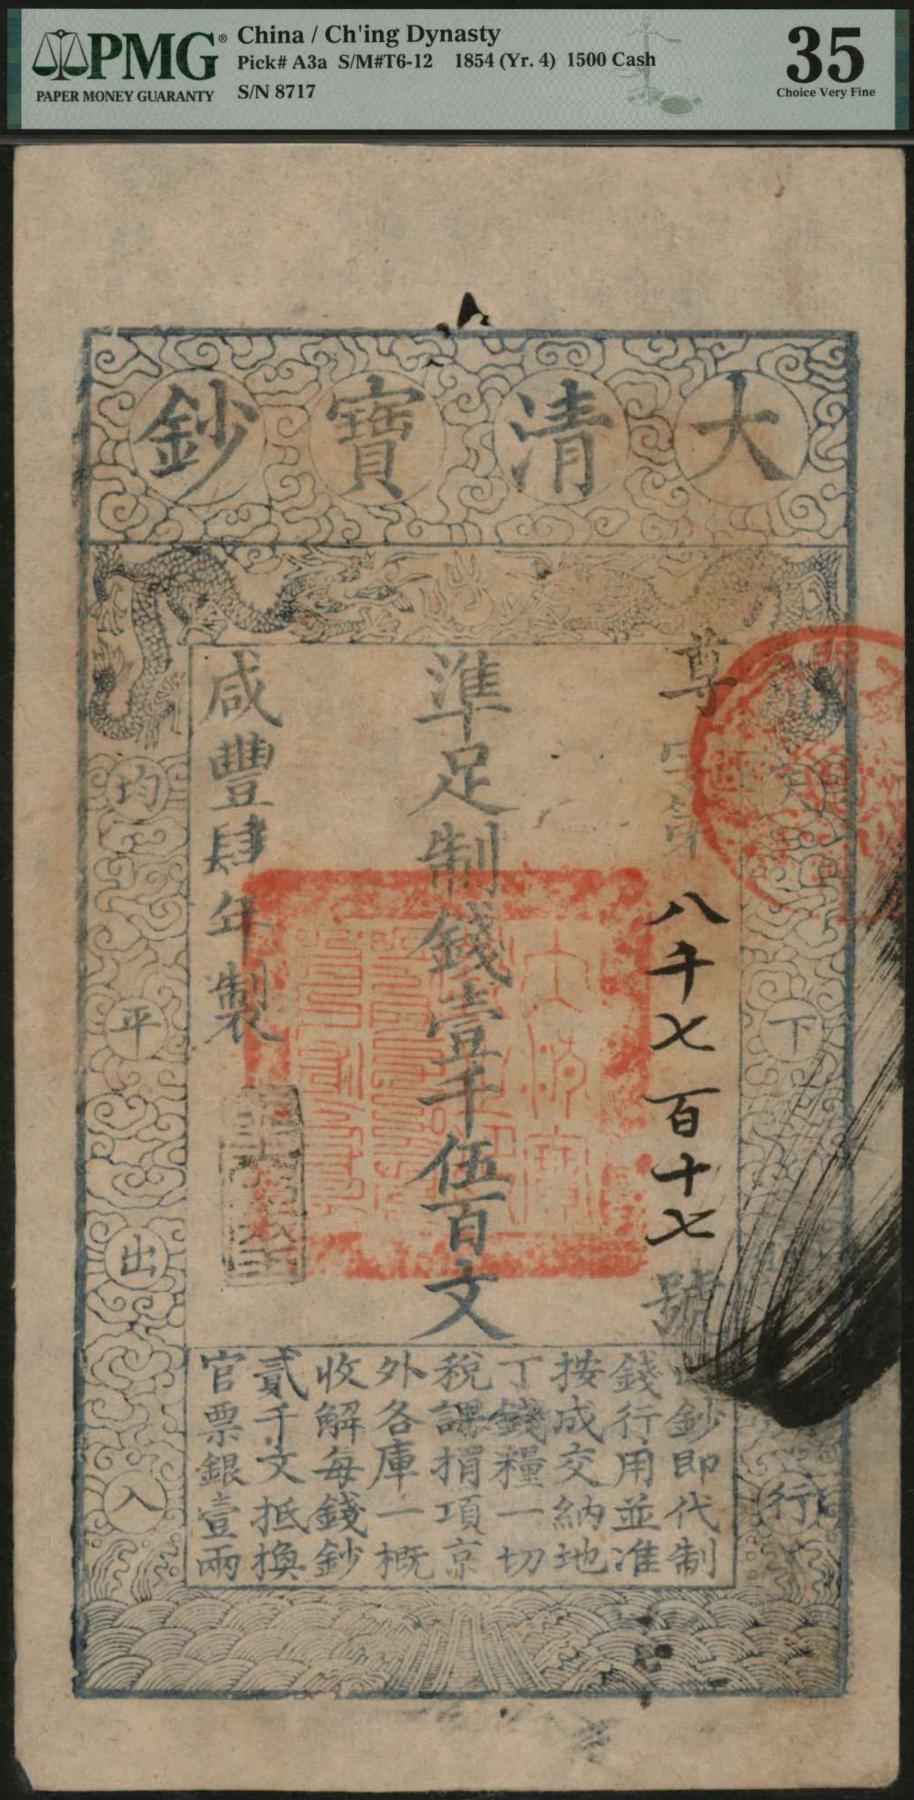 PMG®
PAPER MONEY GUARANTY
China / Ch'ing Dynasty
Pick# A3a S/M#T6-12 1854 (Yr. 4) 1500 Cash
S/N 8717
35
Choice Very Fine
大清寶鈔
天下
行
尊字第八千七百十七號
準足制錢壹千伍百文
咸豐肆年製
均平出入
鈔即代制
錢行用並准
按成交納地
丁錢糧一切
稅課捐項京
外各庫一概
收解每錢鈔
貳千文抵換
官票銀壹兩